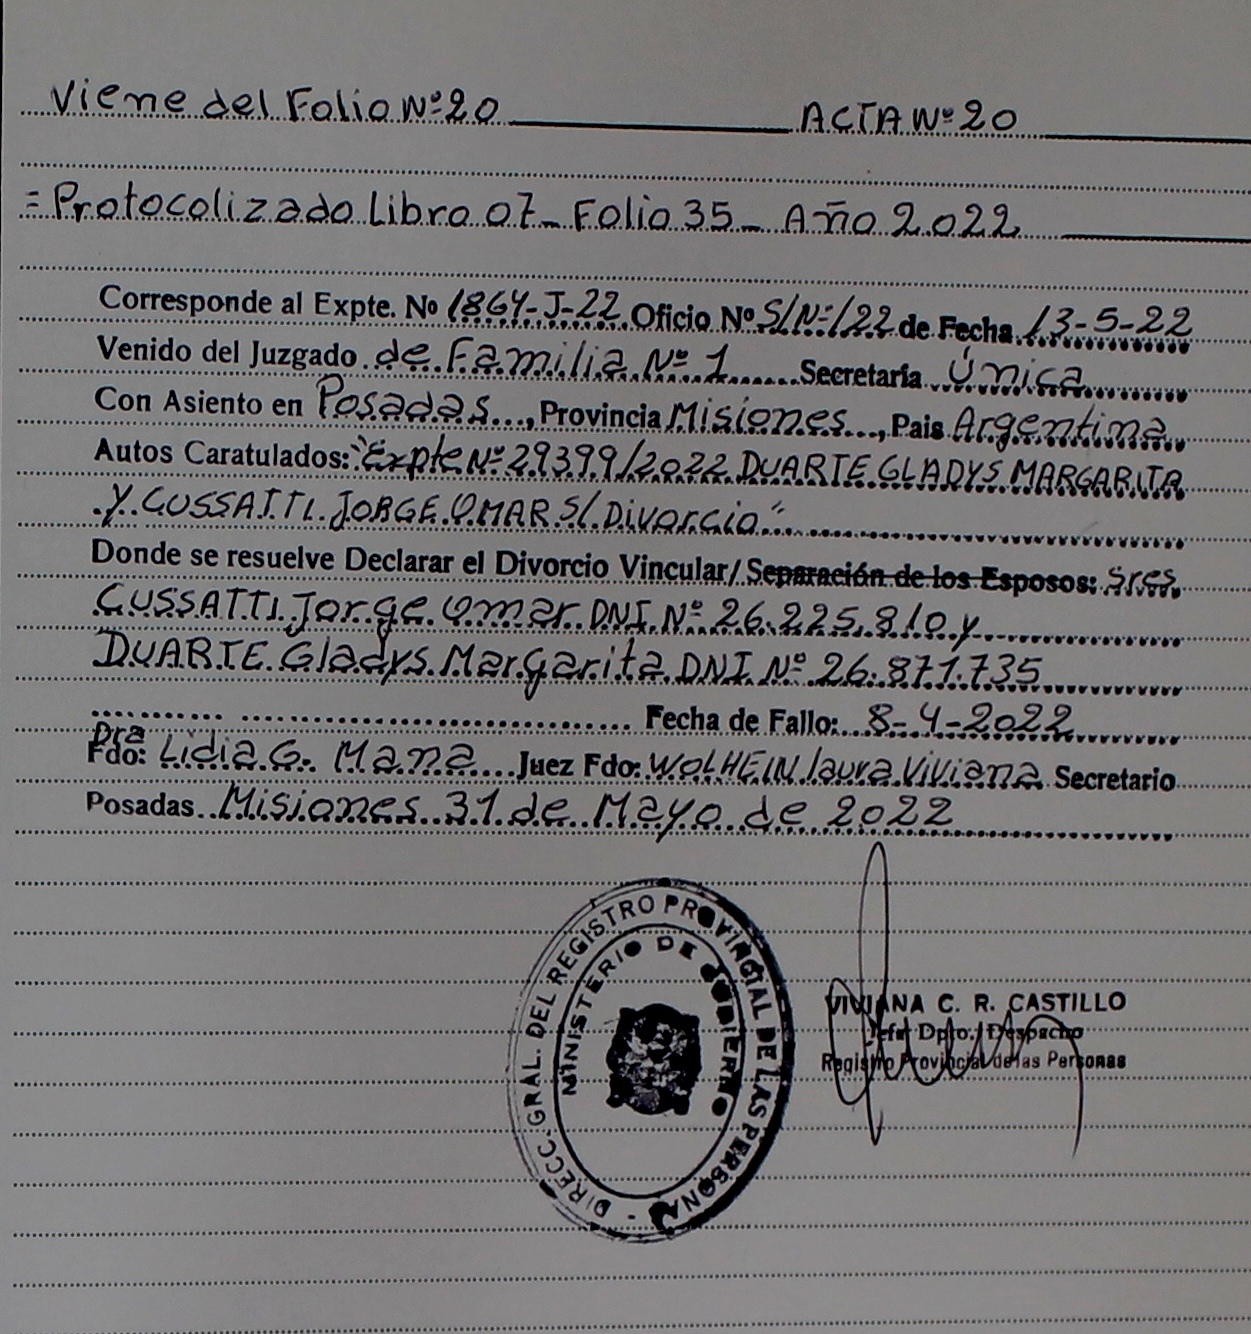 Viene del Folio Nº 20 ACTA Nº 20
= Protocolizado Libro 07_ Folio 35_ Año 2022
Corresponde al Expte. Nº 1864-J-22 Oficio Nº S/Nº/22 de Fecha 13-5-22
Venido del Juzgado de Familia Nº 1 Secretaría Única
Con Asiento en Posadas, Provincia Misiones, Pais Argentina
Autos Caratulados: "Expte Nº 29399/2022 DUARTE GLADYS MARGARITA
Y CUSSATTI JORGE OMAR S/ Divorcio"
Donde se resuelve Declarar el Divorcio Vincular/ Separación de los Esposos: Sres
CUSSATTI Jorge Omar DNI Nº 26.225.810 y
DUARTE Gladys Margarita DNI Nº 26.871.735
Fecha de Fallo: 8-4-2022
Dra
Fdo: Lidia G. Mana Juez Fdo: WOLHEIN laura Viviana Secretario
Posadas Misiones 31 de Mayo de 2022
DIRECC. GRAL. DEL REGISTRO PROVINCIAL DE LAS PERSONAS -
MINISTERIO DE GOBIERNO
VIVIANA C. R. CASTILLO
Jefa Dpto. Despacho
Registro Provincial de las Personas